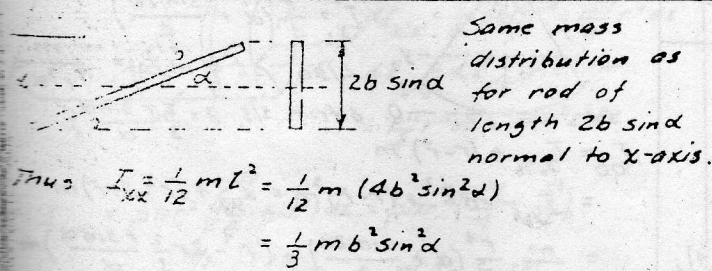 Same mass
distribution as
for rod of
length 2b sinα
normal to x-axis.
b
α
2b sinα
b
Thus I_xx = 1/12 m l² = 1/12 m (4b² sin²α)
= 1/3 m b² sin²α